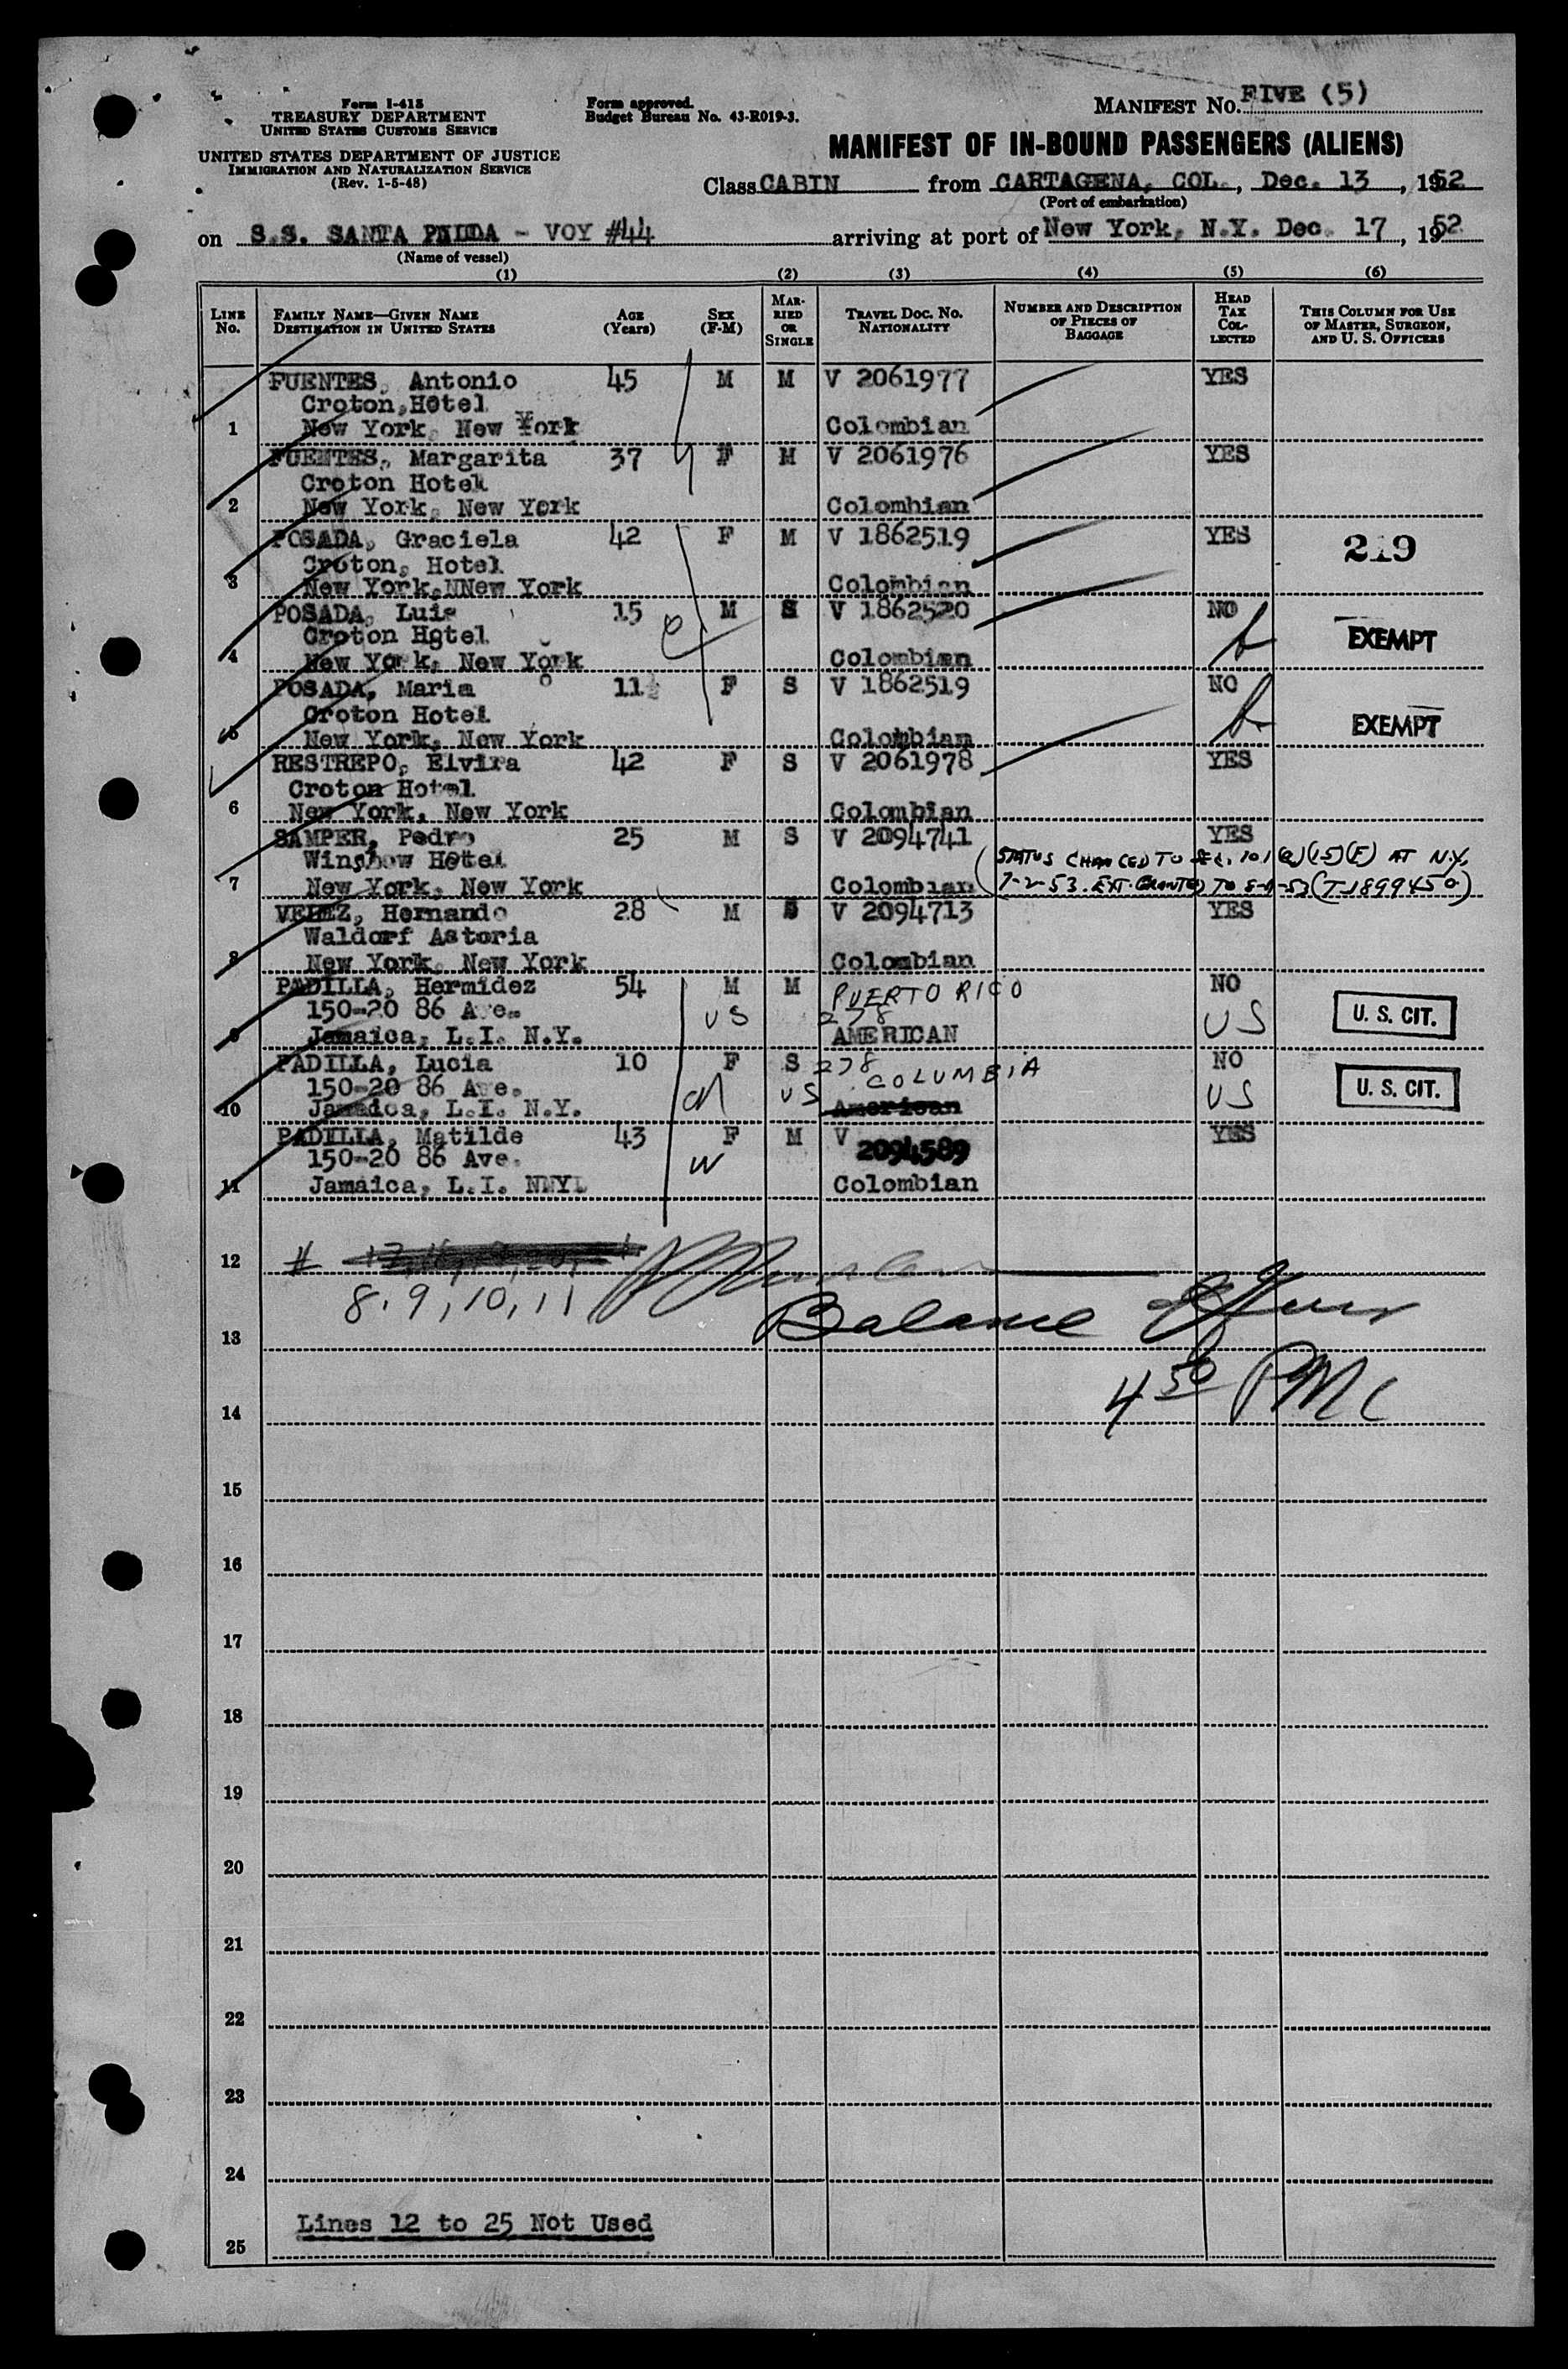 Form I-415
TREASURY DEPARTMENT
UNITED STATES CUSTOMS SERVICE
UNITED STATES DEPARTMENT OF JUSTICE
IMMIGRATION AND NATURALIZATION SERVICE
(Rev. 1-5-48)
Form approved.
Budget Bureau No. 43-R019-3.
MANIFEST No. FIVE (5)
MANIFEST OF IN-BOUND PASSENGERS (ALIENS)
Class CABIN from CARTAGENA, COL., Dec. 13, 1952
(Port of embarkation)
on S.S. SANTA - VOY #44 arriving at port of New York, N.Y. Dec. 17, 1952
(Name of vessel)
(1) (2) (3) (4) (5) (6)
LINE No. FAMILY NAME—GIVEN NAME DESTINATION IN UNITED STATES AGE (Years) SEX (F-M) MARRIED OR SINGLE TRAVEL DOC. NO. NATIONALITY NUMBER AND DESCRIPTION OF PIECES OF BAGGAGE HEAD TAX COLLECTED THIS COLUMN FOR USE OF MASTER, SURGEON, AND U. S. OFFICERS
FUENTES, Antonio 45 M M V 2061977 YES
Croton,Hotel
1 New York, New York Colombian
FUENTES, Margarita 37 F M V 2061976 YES
Croton Hotel
2 New York, New York Colombian
POSADA, Graciela 42 F M V 1862519 YES 219
Croton, Hotel
3 New York,NNew York Colombian
POSADA, Luis 15 M S V 1862520 NO
Croton Hotel EXEMPT
4 New York, New York Colombian
POSADA, Maria 11 F S V 1862519 NO
Croton Hotel EXEMPT
5 New York, New York Colombian
RESTREPO, Elvira 42 F S V 2061978 YES
Croton Hotel
6 New York, New York Colombian
SAMPER, Pedro 25 M S V 2094741 YES
Winslow Hotel STATUS CHANGED TO SEC. 101(a)(15)(F) AT N.Y.
7 New York, New York Colombian 7-2-53. EXT. GRANTED TO (T-1899450)
VELEZ, Hernando 28 M S V 2094713 YES
Waldorf Astoria
8 New York, New York Colombian
PADILLA, Hermidez 54 M M PUERTO RICO NO
150-20 86 Ave. US 278 US U. S. CIT.
9 Jamaica, L.I. N.Y. AMERICAN
PADILLA, Lucia 10 F S 278 COLUMBIA NO
150-20 86 Ave. US US U. S. CIT.
10 Jamaica, L.I. N.Y. American
PADILLA, Matilde 43 F M V 2094589 YES
150-20 86 Ave. W
11 Jamaica, L.I. NNYL Colombian
12 #
8, 9, 10, 11
13 Balance
4 50 PMC
14
15
16
17
18
19
20
21
22
23
24
Lines 12 to 25 Not Used
25